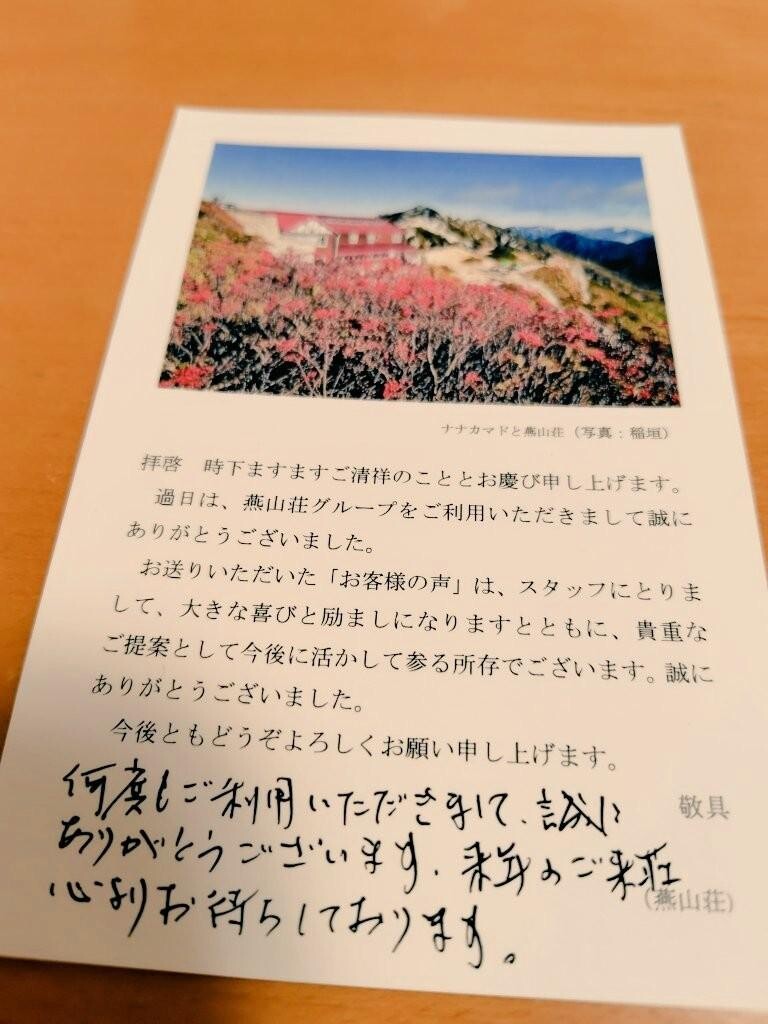 ナナカマドと燕山荘（写真：稲垣）
拝啓　時下ますますご清祥のこととお慶び申し上げます。
過日は、燕山荘グループをご利用いただきまして誠に
ありがとうございました。
お送りいただいた「お客様の声」は、スタッフにとりま
して、大きな喜びと励ましになりますとともに、貴重な
ご提案として今後に活かして参る所存でございます。誠に
ありがとうございました。
今後ともどうぞよろしくお願い申し上げます。
敬具
何度もご利用いただきまして、誠に
ありがとうございます。来年のご来荘
心よりお待ちしております。
（燕山荘）